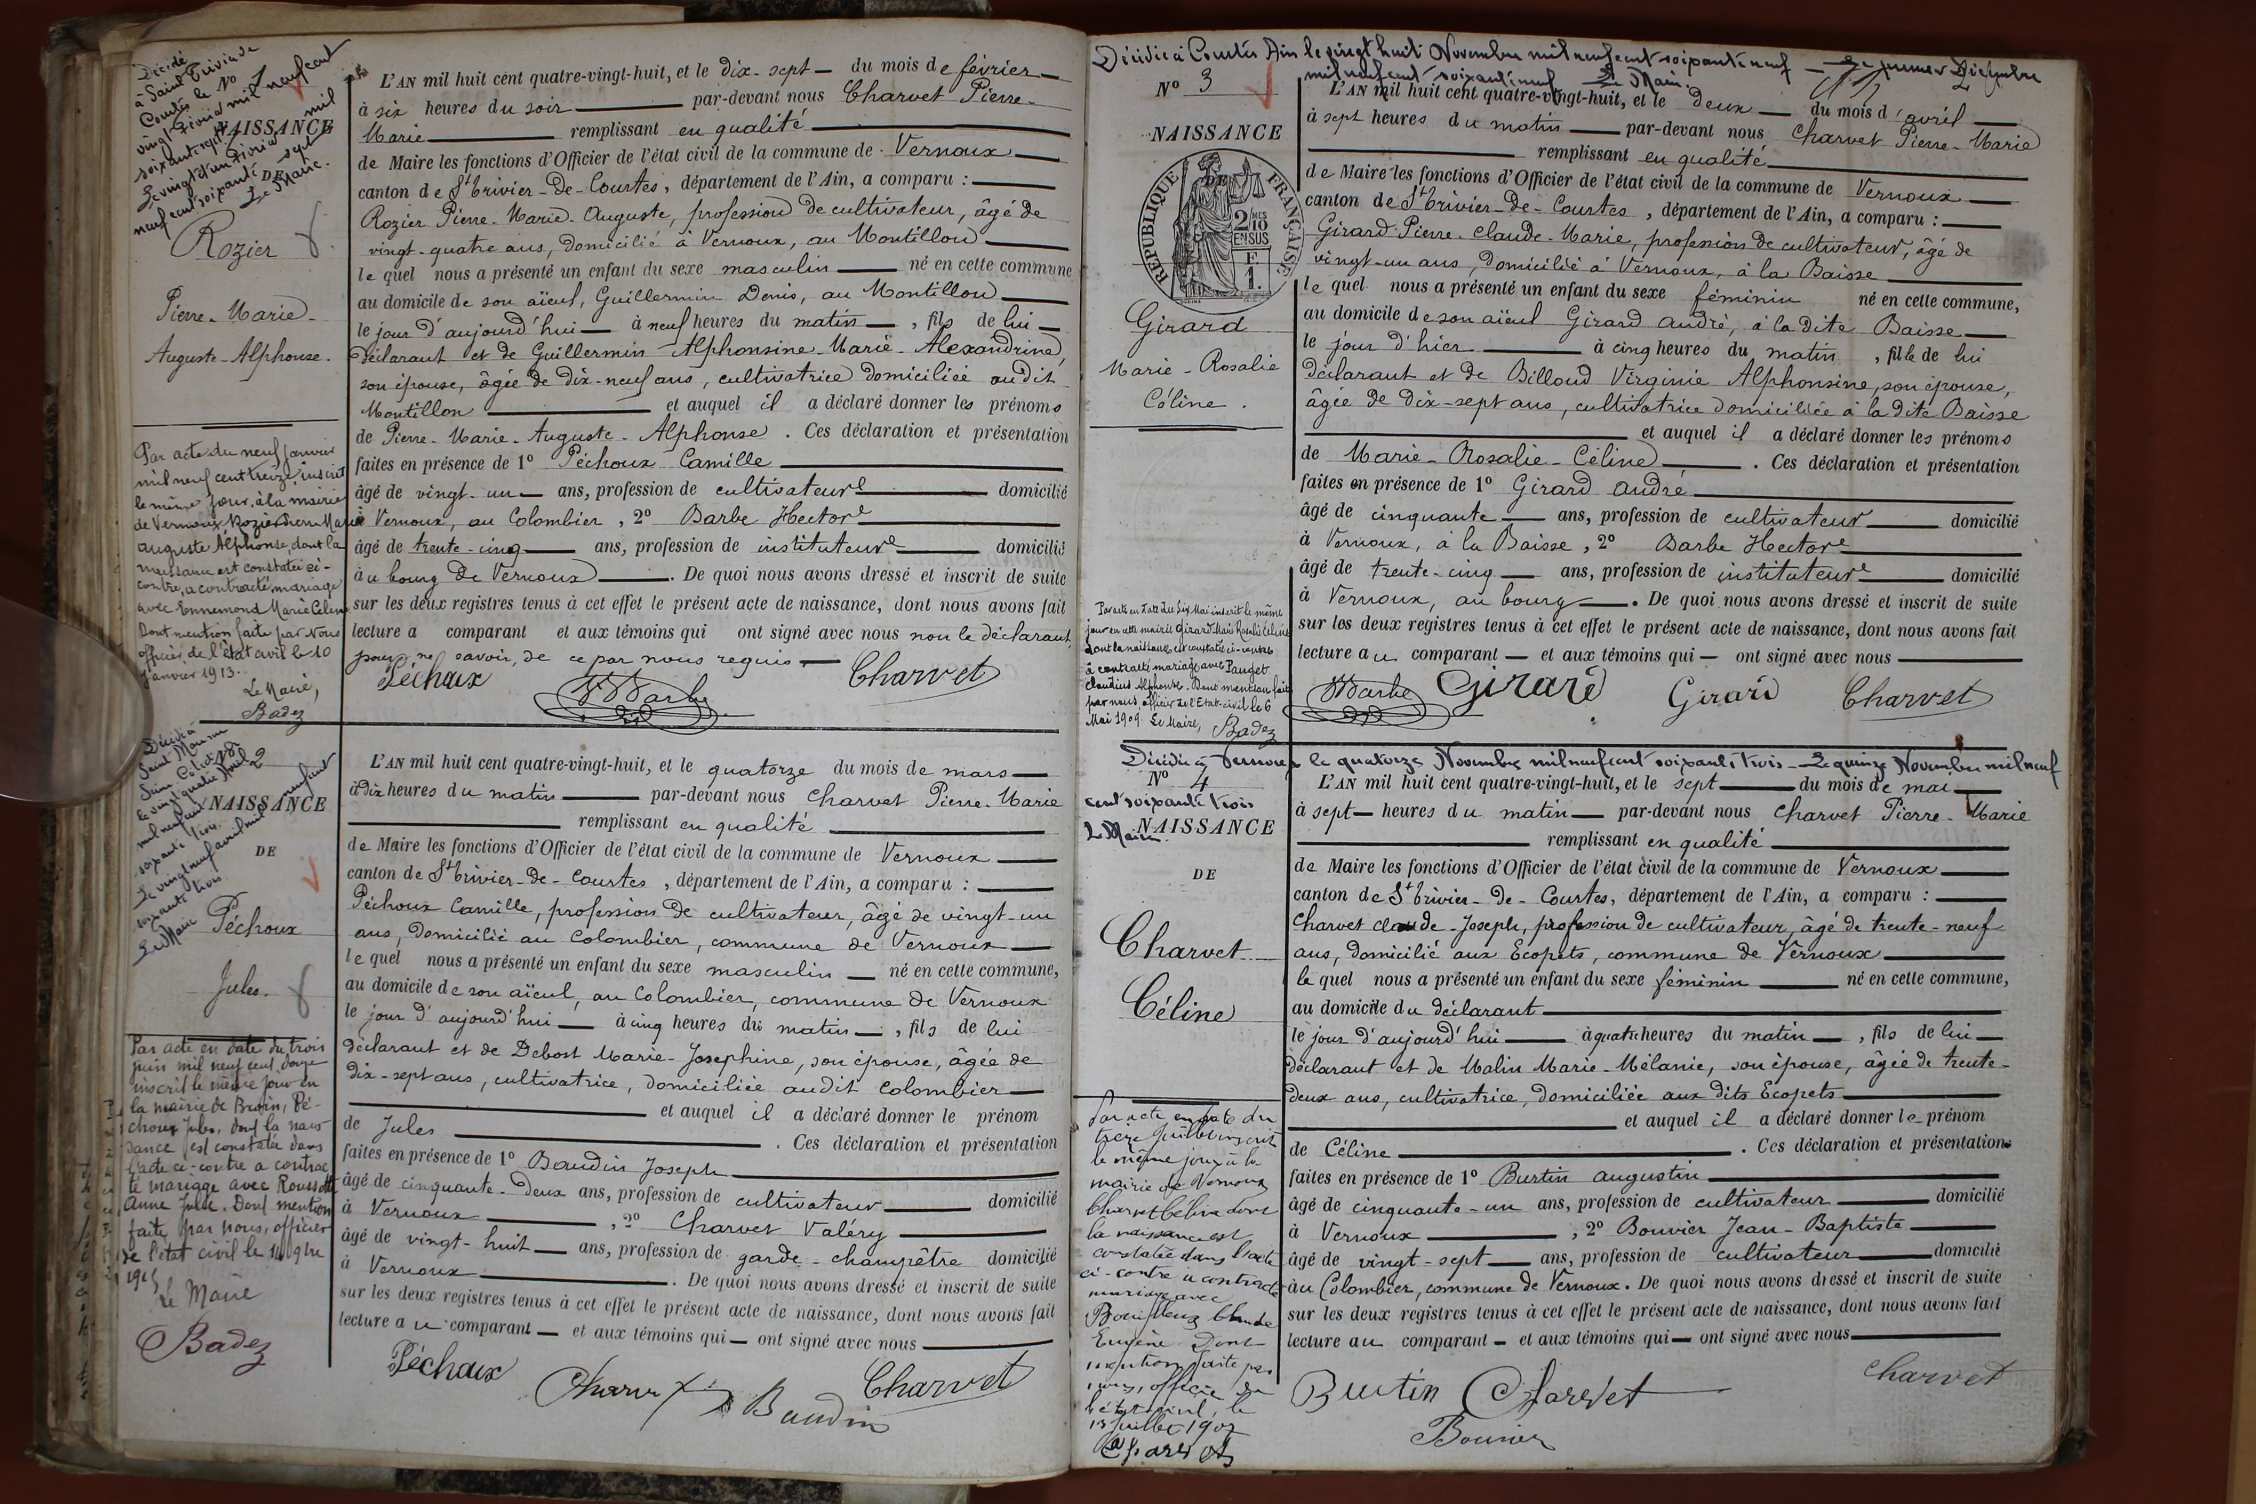 Décédé
à Saint Trivier de
Courtes le
vingt Février mil neuf cent
soixante sept
Le vingt et un Février mil
neuf cent soixante sept
Le Maire.
No 1
NAISSANCE
DE
Rozier
Pierre-Marie-
Auguste-Alphonse.
Par acte du neuf janvier
mil neuf cent treize, inscrit
le même jour, à la mairie
de Vernoux, Rozier Pierre Marie
Auguste Alphonse, dont la
naissance est constatée ci-
contre, a contracté mariage
avec Ennemond Marie Celine
Dont mention faite par Nous
officier de l'état civil le 10
janvier 1913.
Le Maire,
Badez
L'AN mil huit cent quatre-vingt-huit, et le dix-sept du mois de février
à six heures du soir par-devant nous Charvet Pierre-
Marie remplissant en qualité
de Maire les fonctions d'Officier de l'état civil de la commune de Vernoux
canton de St Trivier-De-Courtes, département de l'Ain, a comparu :
Rozier Pierre-Marie-Auguste, profession de cultivateur, âgé de
vingt-quatre ans, domicilié à Vernoux, au Montillon
lequel nous a présenté un enfant du sexe masculin né en cette commune
au domicile de son aïeul, Guillermin Denis, au Montillon
le jour d'aujourd'hui à neuf heures du matin, fils de lui
déclarant et de Guillermin Alphonsine-Marie-Alexandrine,
son épouse, âgée de dix-neuf ans, cultivatrice domiciliée audit
Montillon et auquel il a déclaré donner les prénoms
de Pierre-Marie-Auguste-Alphonse. Ces déclaration et présentation
faites en présence de 1º Péchoux Camille
âgé de vingt-un ans, profession de cultivateur domicilié
à Vernoux, au Colombier, 2º Barbe Hector
âgé de trente-cinq ans, profession de instituteur domicilié
au bourg de Vernoux. De quoi nous avons dressé et inscrit de suite
sur les deux registres tenus à cet effet le présent acte de naissance, dont nous avons fait
lecture a comparant et aux témoins qui ont signé avec nous non le déclarant,
pour ne savoir, de ce par nous requis
Péchoux Barbe Charvet
Décédé à
Saint
le vingt quatre Avril
mil neuf cent
soixante trois.
Le vingt neuf avril mil neuf cent
soixante trois
Le Maire
2
NAISSANCE
DE
Péchoux
Jules.
Par acte en date du trois
juin mil neuf cent douze
inscrit le même jour en
la mairie de Pé-
choux Jules, dont la nais-
sance est constatée dans
l'acte ci-contre a contrac
té mariage avec Roussotte
Anne Julie. Dont mention
faite par nous, officier
de l'état civil le 14 9bre
Le Maire
Badez
L'AN mil huit cent quatre-vingt-huit, et le quatorze du mois de mars
à dix heures du matin par-devant nous Charvet Pierre-Marie
remplissant en qualité
de Maire les fonctions d'Officier de l'état civil de la commune de Vernoux
canton de St Trivier-De-Courtes, département de l'Ain, a comparu :
Péchoux Camille, profession de cultivateur, âgé de vingt-un
ans, domicilié au Colombier, commune de Vernoux
lequel nous a présenté un enfant du sexe masculin né en cette commune,
au domicile de son aïeul, au Colombier, commune de Vernoux
le jour d'aujourd'hui à cinq heures du matin, fils de lui
déclarant et de Debost Marie-Josephine, son épouse, âgée de
dix-sept ans, cultivatrice, domiciliée audit Colombier
et auquel il a déclaré donner le prénom
de Jules. Ces déclaration et présentation
faites en présence de 1º Baudin Joseph
âgé de cinquante-deux ans, profession de cultivateur domicilié
à Vernoux, 2º Charvet Valéry
âgé de vingt-huit ans, profession de garde-champêtre domicilié
à Vernoux. De quoi nous avons dressé et inscrit de suite
sur les deux registres tenus à cet effet le présent acte de naissance, dont nous avons fait
lecture au comparant et aux témoins qui ont signé avec nous
Péchoux Charvet Baudin Charvet
Décédée à Courtes Ain le vingt huit Novembre mil neuf cent soixante neuf Le premier Décembre
mil neuf cent soixante neuf Le Maire.
No 3
NAISSANCE
DE
RÉPUBLIQUE FRANÇAISE
2 MES
10
EN SUS
F.
1.
Girard
Marie-Rosalie
Céline.
Par acte en date du six Mai inscrit le même
jour en cette mairie Girard Marie Rosalie Céline
dont la naissance est constatée ci-contre
a contracté mariage avec Pauget
Claudius Alphonse. Dont mention faite
par nous, officier de l'Etat-civil le 6
Mai 1909. Le Maire,
Badez
L'AN mil huit cent quatre-vingt-huit, et le deux du mois d'avril
à sept heures du matin par-devant nous Charvet Pierre-Marie
remplissant en qualité
de Maire les fonctions d'Officier de l'état civil de la commune de Vernoux
canton de St Trivier-De-Courtes, département de l'Ain, a comparu :
Girard Pierre-Claude-Marie, profession de cultivateur, âgé de
vingt-un ans, domicilié à Vernoux, à la Baisse
lequel nous a présenté un enfant du sexe féminin né en cette commune,
au domicile de son aïeul Girard André, à la dite Baisse
le jour d'hier à cinq heures du matin, fille de lui
déclarant et de Billoud Virginie Alphonsine, son épouse,
âgée de dix-sept ans, cultivatrice domiciliée à la dite Baisse
et auquel il a déclaré donner les prénoms
de Marie-Rosalie-Céline. Ces déclaration et présentation
faites en présence de 1º Girard André
âgé de cinquante ans, profession de cultivateur domicilié
à Vernoux, à la Baisse, 2º Barbe Hector
âgé de trente-cinq ans, profession de instituteur domicilié
à Vernoux, au bourg. De quoi nous avons dressé et inscrit de suite
sur les deux registres tenus à cet effet le présent acte de naissance, dont nous avons fait
lecture au comparant et aux témoins qui ont signé avec nous
Barbe Girard Girard Charvet
Décédée à Vernoux le quatorze Novembre mil neuf cent soixante trois Le quinze Novembre mil neuf
cent soixante trois
Le Maire
No 4
NAISSANCE
DE
Charvet
Céline
Par acte en date du
treize Juillet inscrit
le même jour à la
mairie de Vernoux
Charvet Céline dont
la naissance est
constatée dans l'acte
ci-contre a contracté
mariage avec
Claude
Eugène Dont
mention faite par
nous, officier de
l'état civil, le
13 Juillet 1907
Charvet
L'AN mil huit cent quatre-vingt-huit, et le sept du mois de mai
à sept heures du matin par-devant nous Charvet Pierre-Marie
remplissant en qualité
de Maire les fonctions d'Officier de l'état civil de la commune de Vernoux
canton de St Trivier-De-Courtes, département de l'Ain, a comparu :
Charvet Claude-Joseph, profession de cultivateur, âgé de trente-neuf
ans, domicilié aux Ecopets, commune de Vernoux
lequel nous a présenté un enfant du sexe féminin né en cette commune,
au domicile du déclarant
le jour d'aujourd'hui à quatre heures du matin, fils de lui
déclarant et de Malin Marie-Mélanie, son épouse, âgée de trente-
deux ans, cultivatrice, domiciliée aux dits Ecopets
et auquel il a déclaré donner le prénom
de Céline. Ces déclaration et présentation
faites en présence de 1º Burtin Augustin
âgé de cinquante-un ans, profession de cultivateur domicilié
à Vernoux, 2º Bouvier Jean-Baptiste
âgé de vingt-sept ans, profession de cultivateur domicilié
au Colombier, commune de Vernoux. De quoi nous avons dressé et inscrit de suite
sur les deux registres tenus à cet effet le présent acte de naissance, dont nous avons fait
lecture au comparant et aux témoins qui ont signé avec nous
Burtin Charvet Charvet
Bouvier